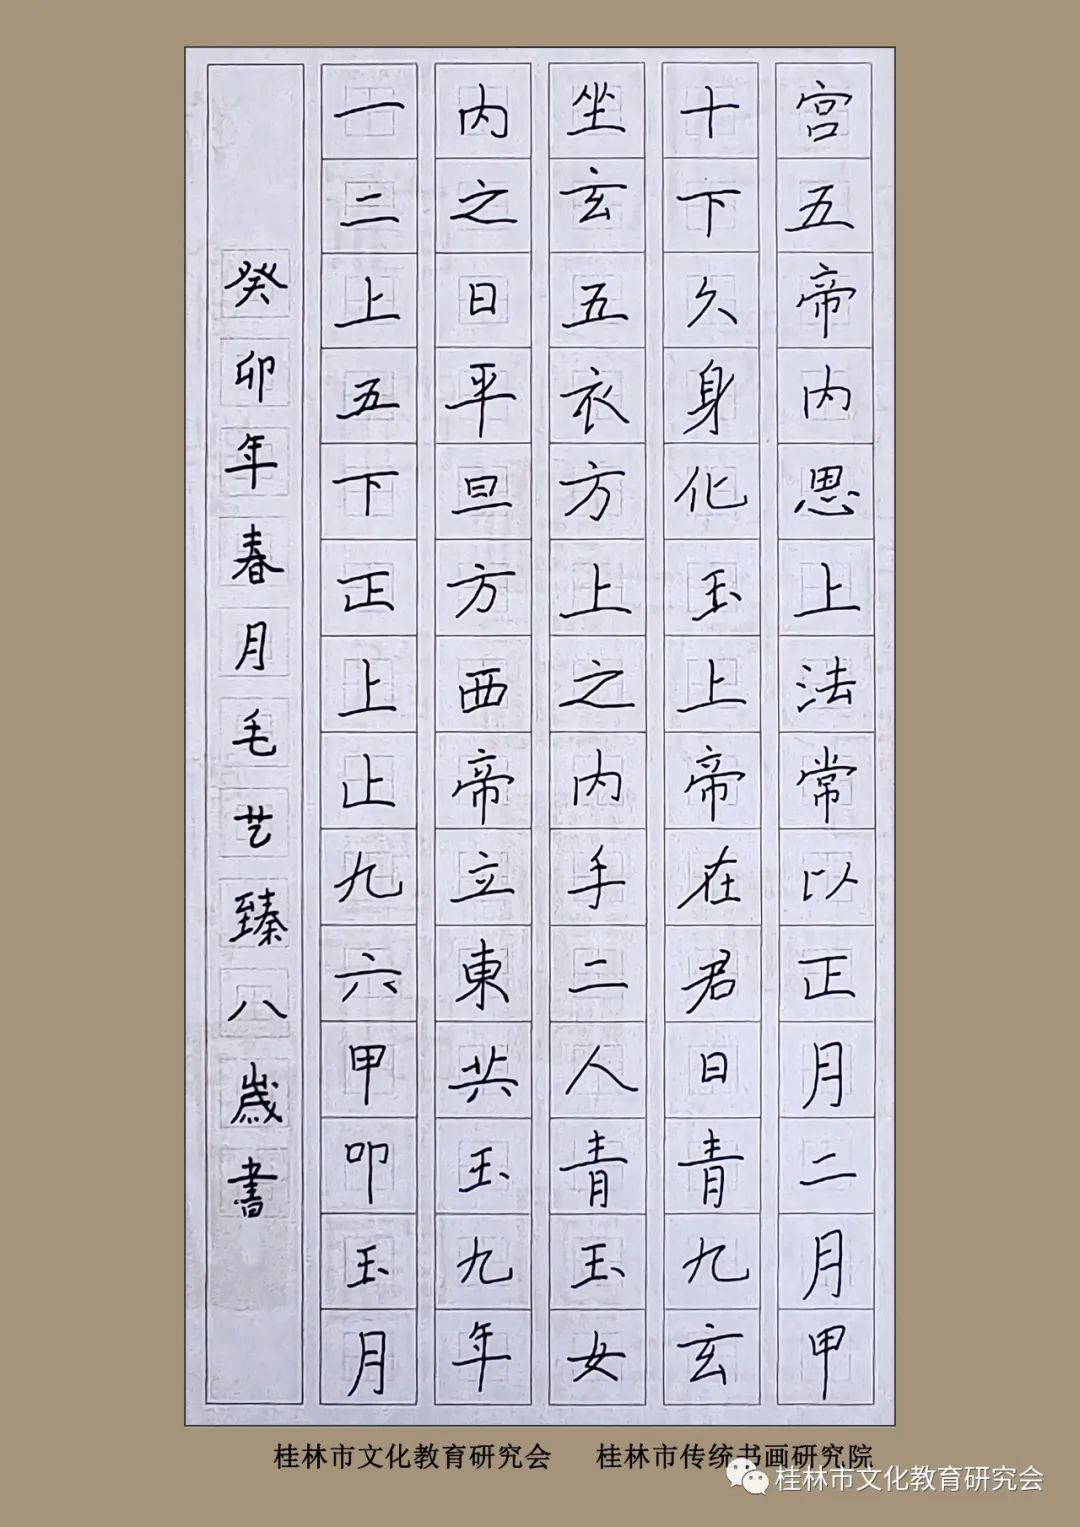 宫五帝内思上法常以正月二月甲
十下久身化玉上帝在君日青九玄
坐玄五衣方上之内手二人青玉女
内之日平旦方西帝立東共玉九年
一二上五下正上止九六甲叩玉月
癸卯年春月毛艺臻八歲書
桂林市文化教育研究会 桂林市传统书画研究院
桂林市文化教育研究会